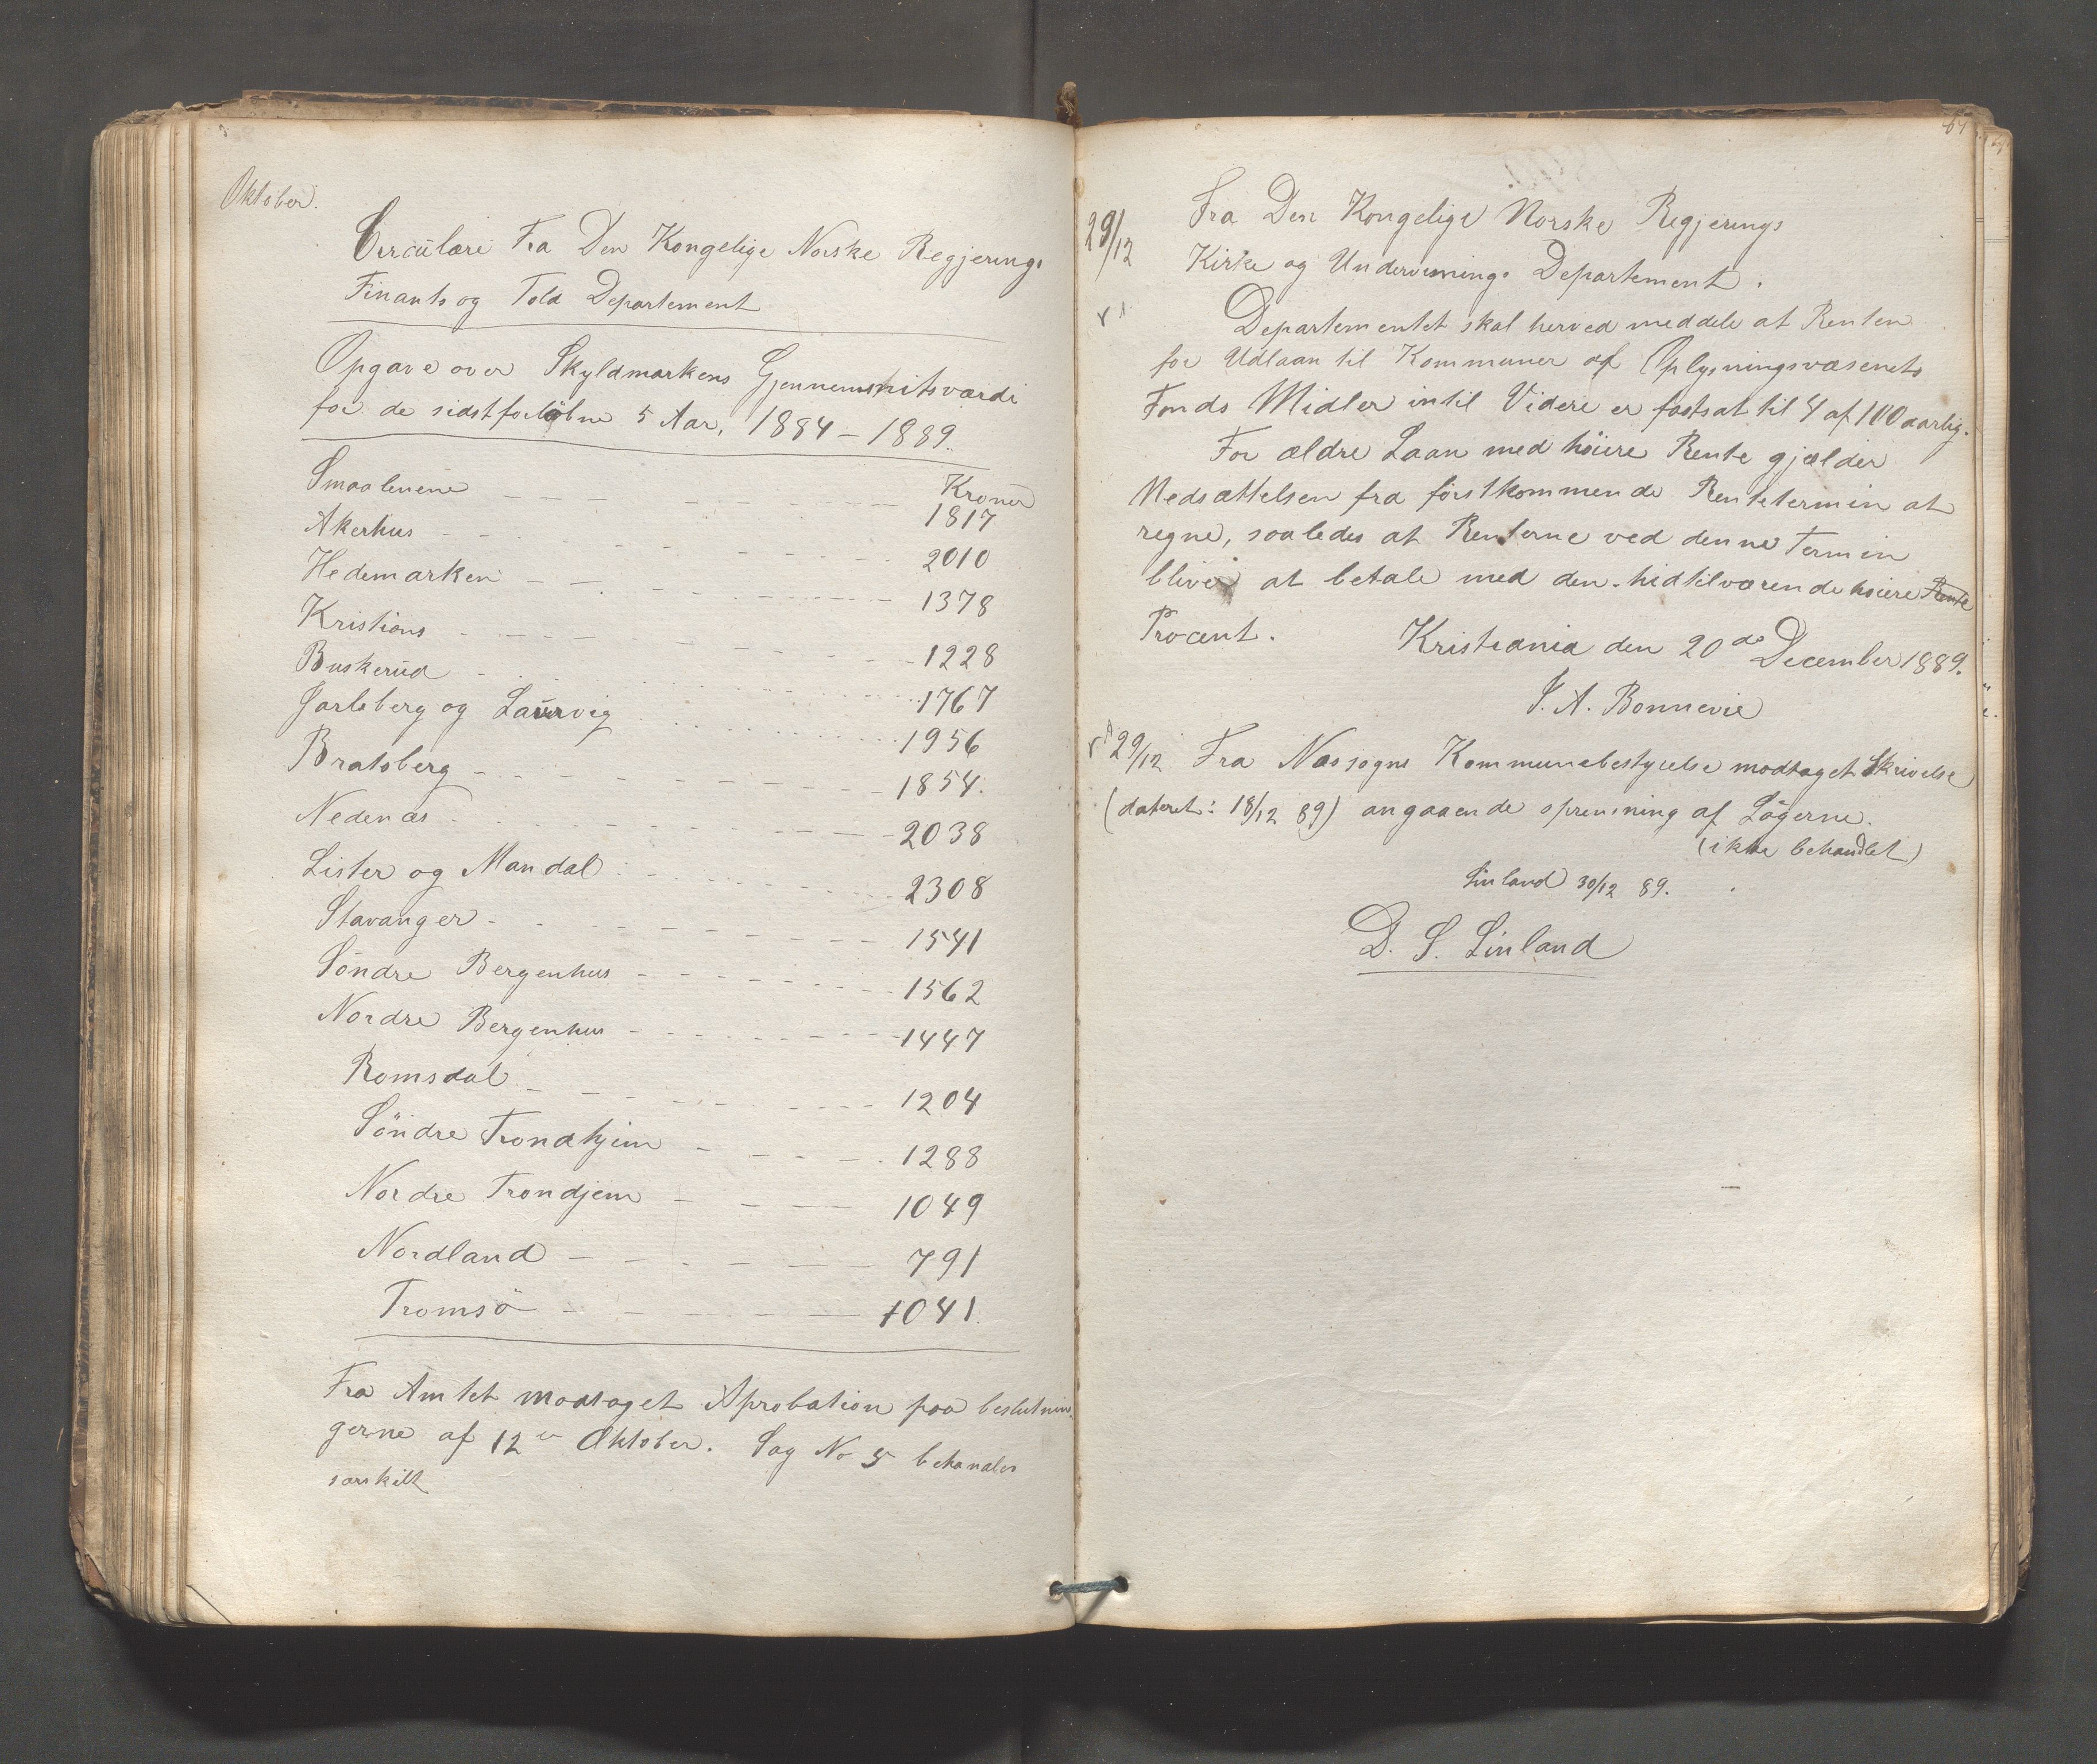 Oktober.
Circulære Fra Den Kongelige Norske Regjerings
Finants og Told Departement
Opgave over Skyldmarkens Gjennemsnitsværdi
for de sidst forløbne 5 Aar, 1884 – 1889.
Kroner
Smaalenene 1817
Akerhus 2010
Hedemarken 1378
Kristians 1228
Buskerud 1767
Jarlsberg og Laurvig 1956
Bratsberg 1854.
Nedenæs 2038
Lister og Mandal 2308
Stavanger 1541
Söndre Bergenhus 1562
Nordre Bergenhus 1447
Romsdal 1204
Söndre Trondhjem 1288
Nordre Trondjem 1049
Nordland 791
Tromsö 1041.
Fra Amtet modtaget Aprobation paa beslutnin-
gerne af 12te Oktober. Sag No 5 behandles
særskilt
64
29/12
Fra Den Kongelige Norske Regjerings
Kirke og Undervisnings Departement.
Departementet skal herved meddele at Renten
for Udlaan til Kommuner af Oplysningsvæsenets
Fonds Midler intil Videre er fastsat til 4 af 100 aarlig.
For ældre Laan med höiere Rente gjælder
Nedsættelsen fra förstkommende Rentetermin at
regne, saaledes at Renterne ved denne Termin
bliver at betale med den hidtilværende höiere Rente
Procent.
Kristiania den 20de December 1889.
J. A. Bonnevie
29/12 Fra Næssogns Kommunebestyrelse modtaget Skrivelse
(dateret: 18/12 89) angaaende oprensning af Lögerne.
(ikke behandlet)
Linland 30/12 89.
D. S. Linland